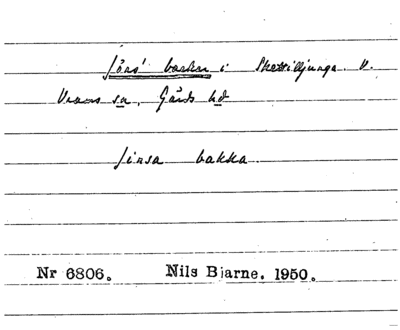 Jöns' backar i Skättilljunga. V.
Vrams sn. Gärds hd
jinsa bakka.
Nr 6806. Nils Bjarne. 1950.